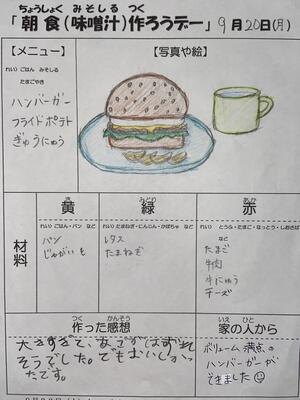 ちょうしょく みそしる つく
「朝食(味噌汁)作ろうデー」9月20日(月)
【メニュー】
【写真や絵】
れい) ごはん みそしる
たまごやき
ハンバーガー
フライドポテト
ぎゅうにゅう
材料
き
黄
れい) ごはん・パン など
パン
じゃがいも
みどり
緑
れい) たまねぎ・にんじん・かぼちゃ など
レタス
たまねぎ
あか
赤
れい) とうふ・たまご・なっとう・しおさば
など
たまご
牛肉
牛にゅう
チーズ
つく かんそう
作った感想
大きすぎて、あごがはずれ
そうでした。でもおいしかっ
たです。
いえ ひと
家の人から
ボリューム満点の
ハンバーガーが
できました